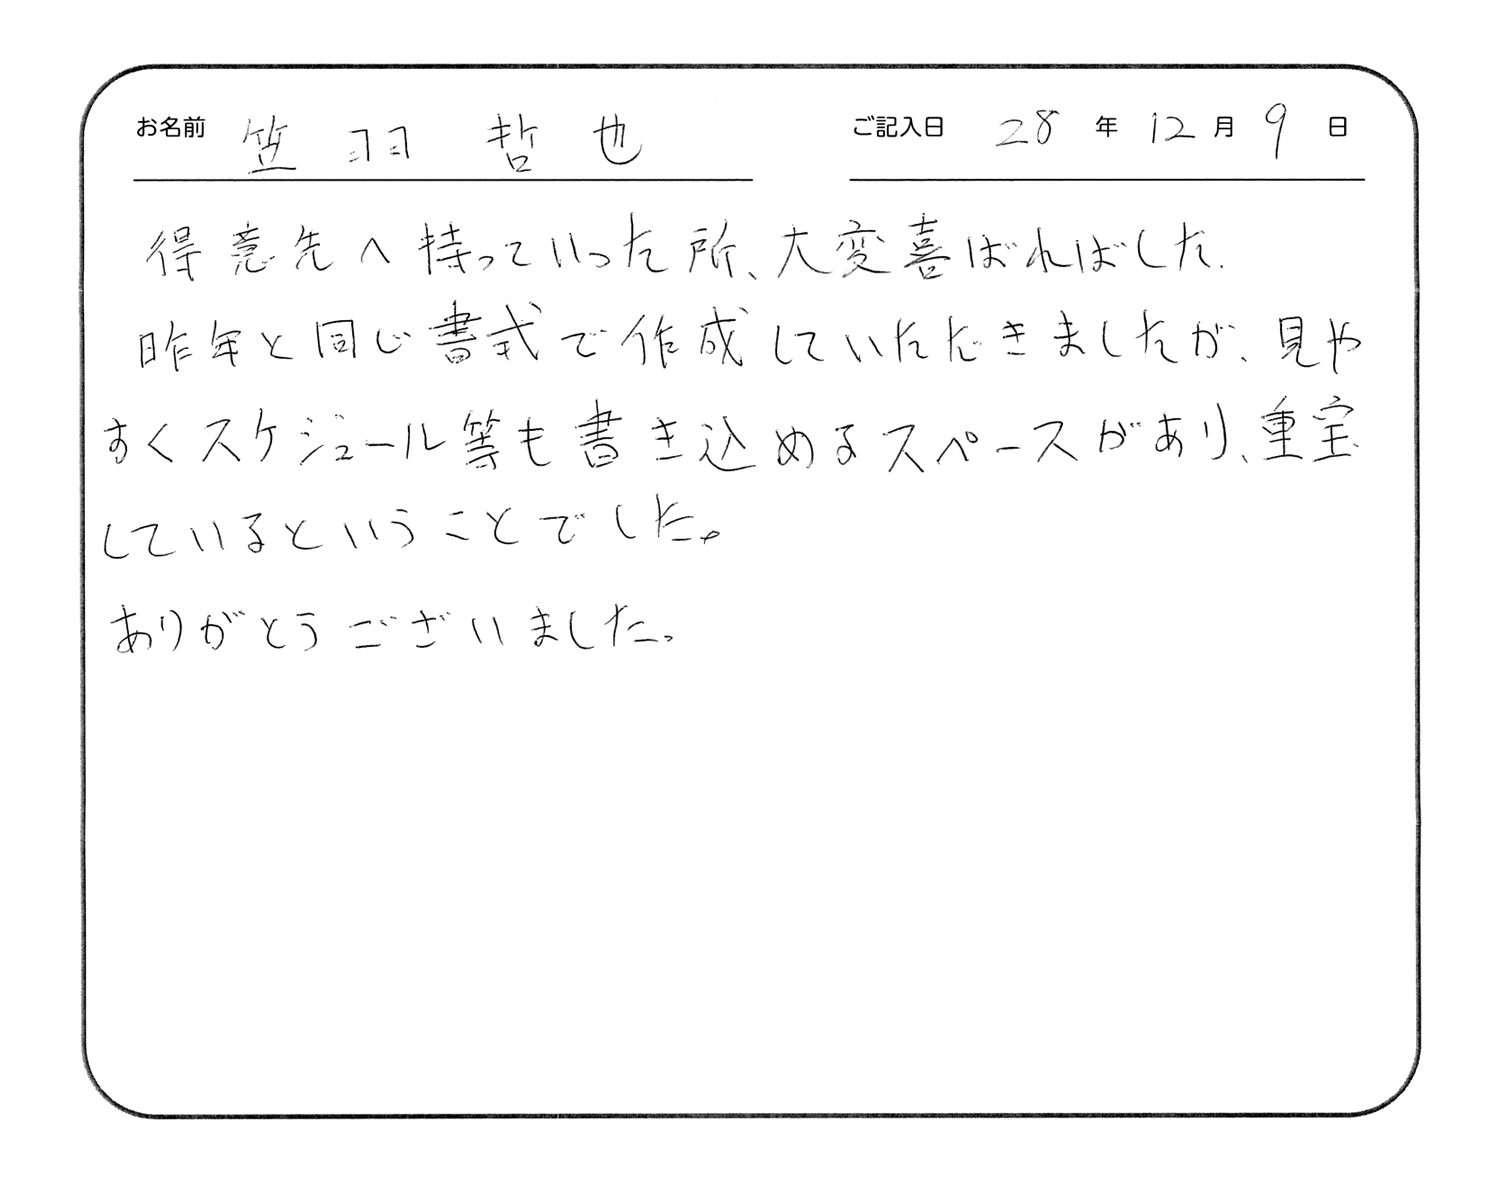 お名前 笠羽 哲也 ご記入日 28年12月9日
得意先へ持っていった所、大変喜ばればした.
昨年と同じ書式で作成していただきましたが、見や
すくスケジュール等も書き込めるスペースがあり、重宝
しているということでした。
ありがとうございました。